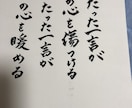 たった一言が
の心を傷つける
たった一言が
の心を暖める